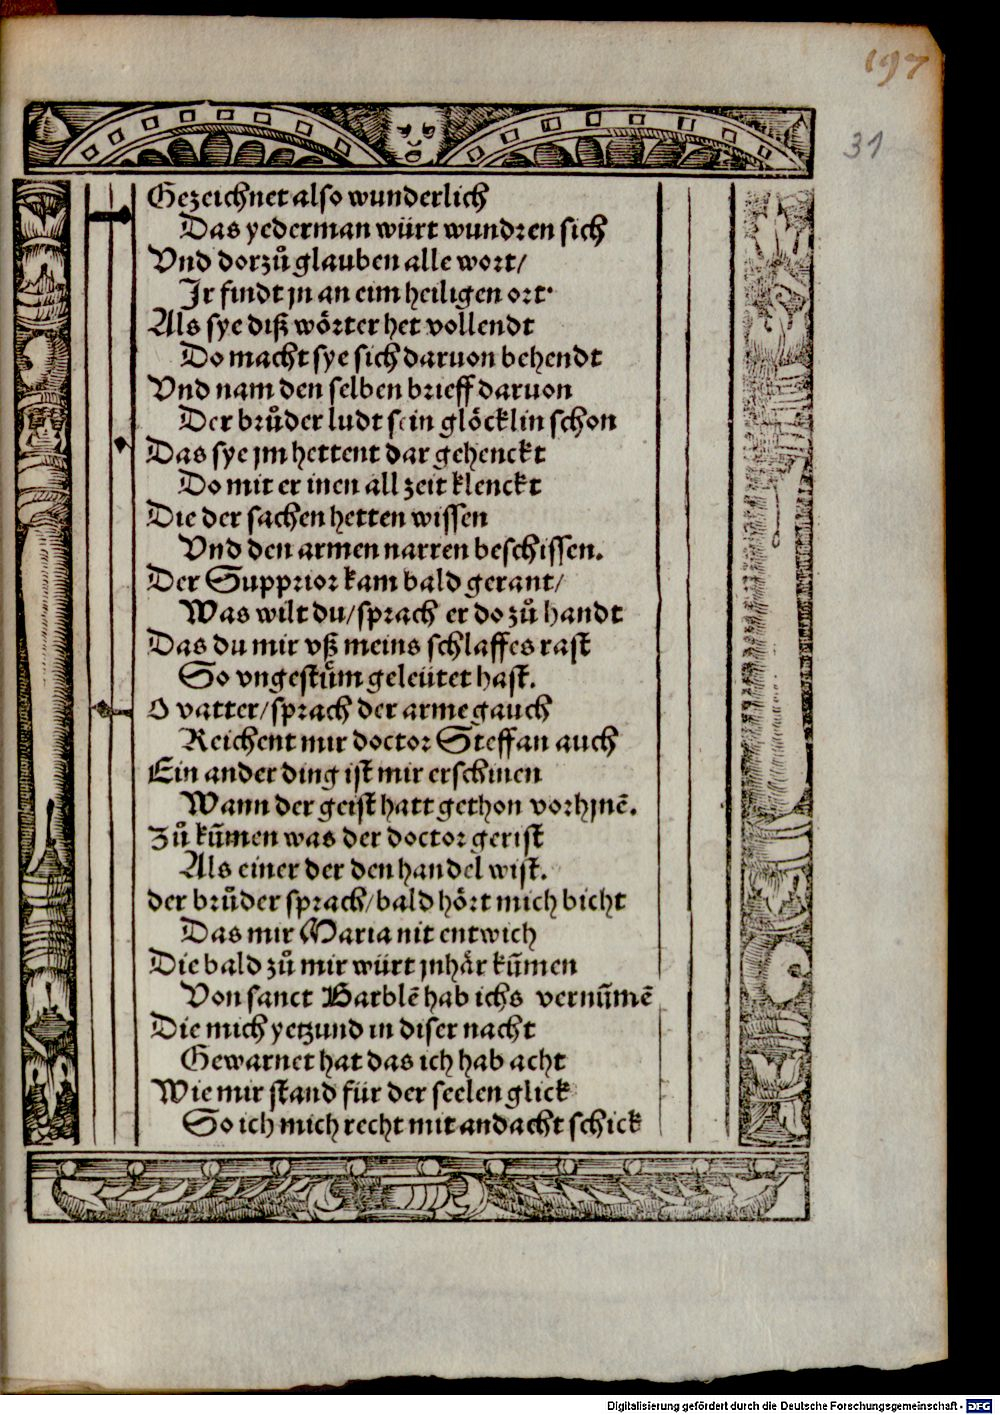 197
31
Gezeichnet also wunderlich
Das yederman würt wundren sich
Vnd dorzuͦ glauben alle wort/
Jr findt jn an eim heiligen ort·
Als sye diß wörter het vollendt
Do macht sye sich daruon behendt
Vnd nam den selben brieff daruon
Der bruͦder ludt sein glöcklin schon
Das sye jm hettent dar gehenckt
Do mit er inen all zeit klenckt
Die der sachen hetten wissen
Vnd den armen narren beschissen.
Der Supprior kam bald gerant/
Was wilt du/sprach er do zuͦ handt
Das du mir vß meins schlaffes rast
So vngestuͤm geleütet hast.
O vatter/sprach der arme gauch
Reichent mir doctor Steffan auch
Ein ander ding ist mir erschinen
Wann der geist hatt gethon vorhjnē.
Zuͦ kūmen was der doctor gerist
Als einer der den handel wist.
der bruͦder sprach/bald hört mich bicht
Das mir Maria nit entwich
Die bald zuͦ mir würt jnhär kūmen
Von sanct Barblē hab ichs vernūmē
Die mich yetzund in diser nacht
Gewarnet hat das ich hab acht
Wie mir stand für der seelen glick
So ich mich recht mit andacht schick
Digitalisierung gefördert durch die Deutsche Forschungsgemeinschaft - DFG